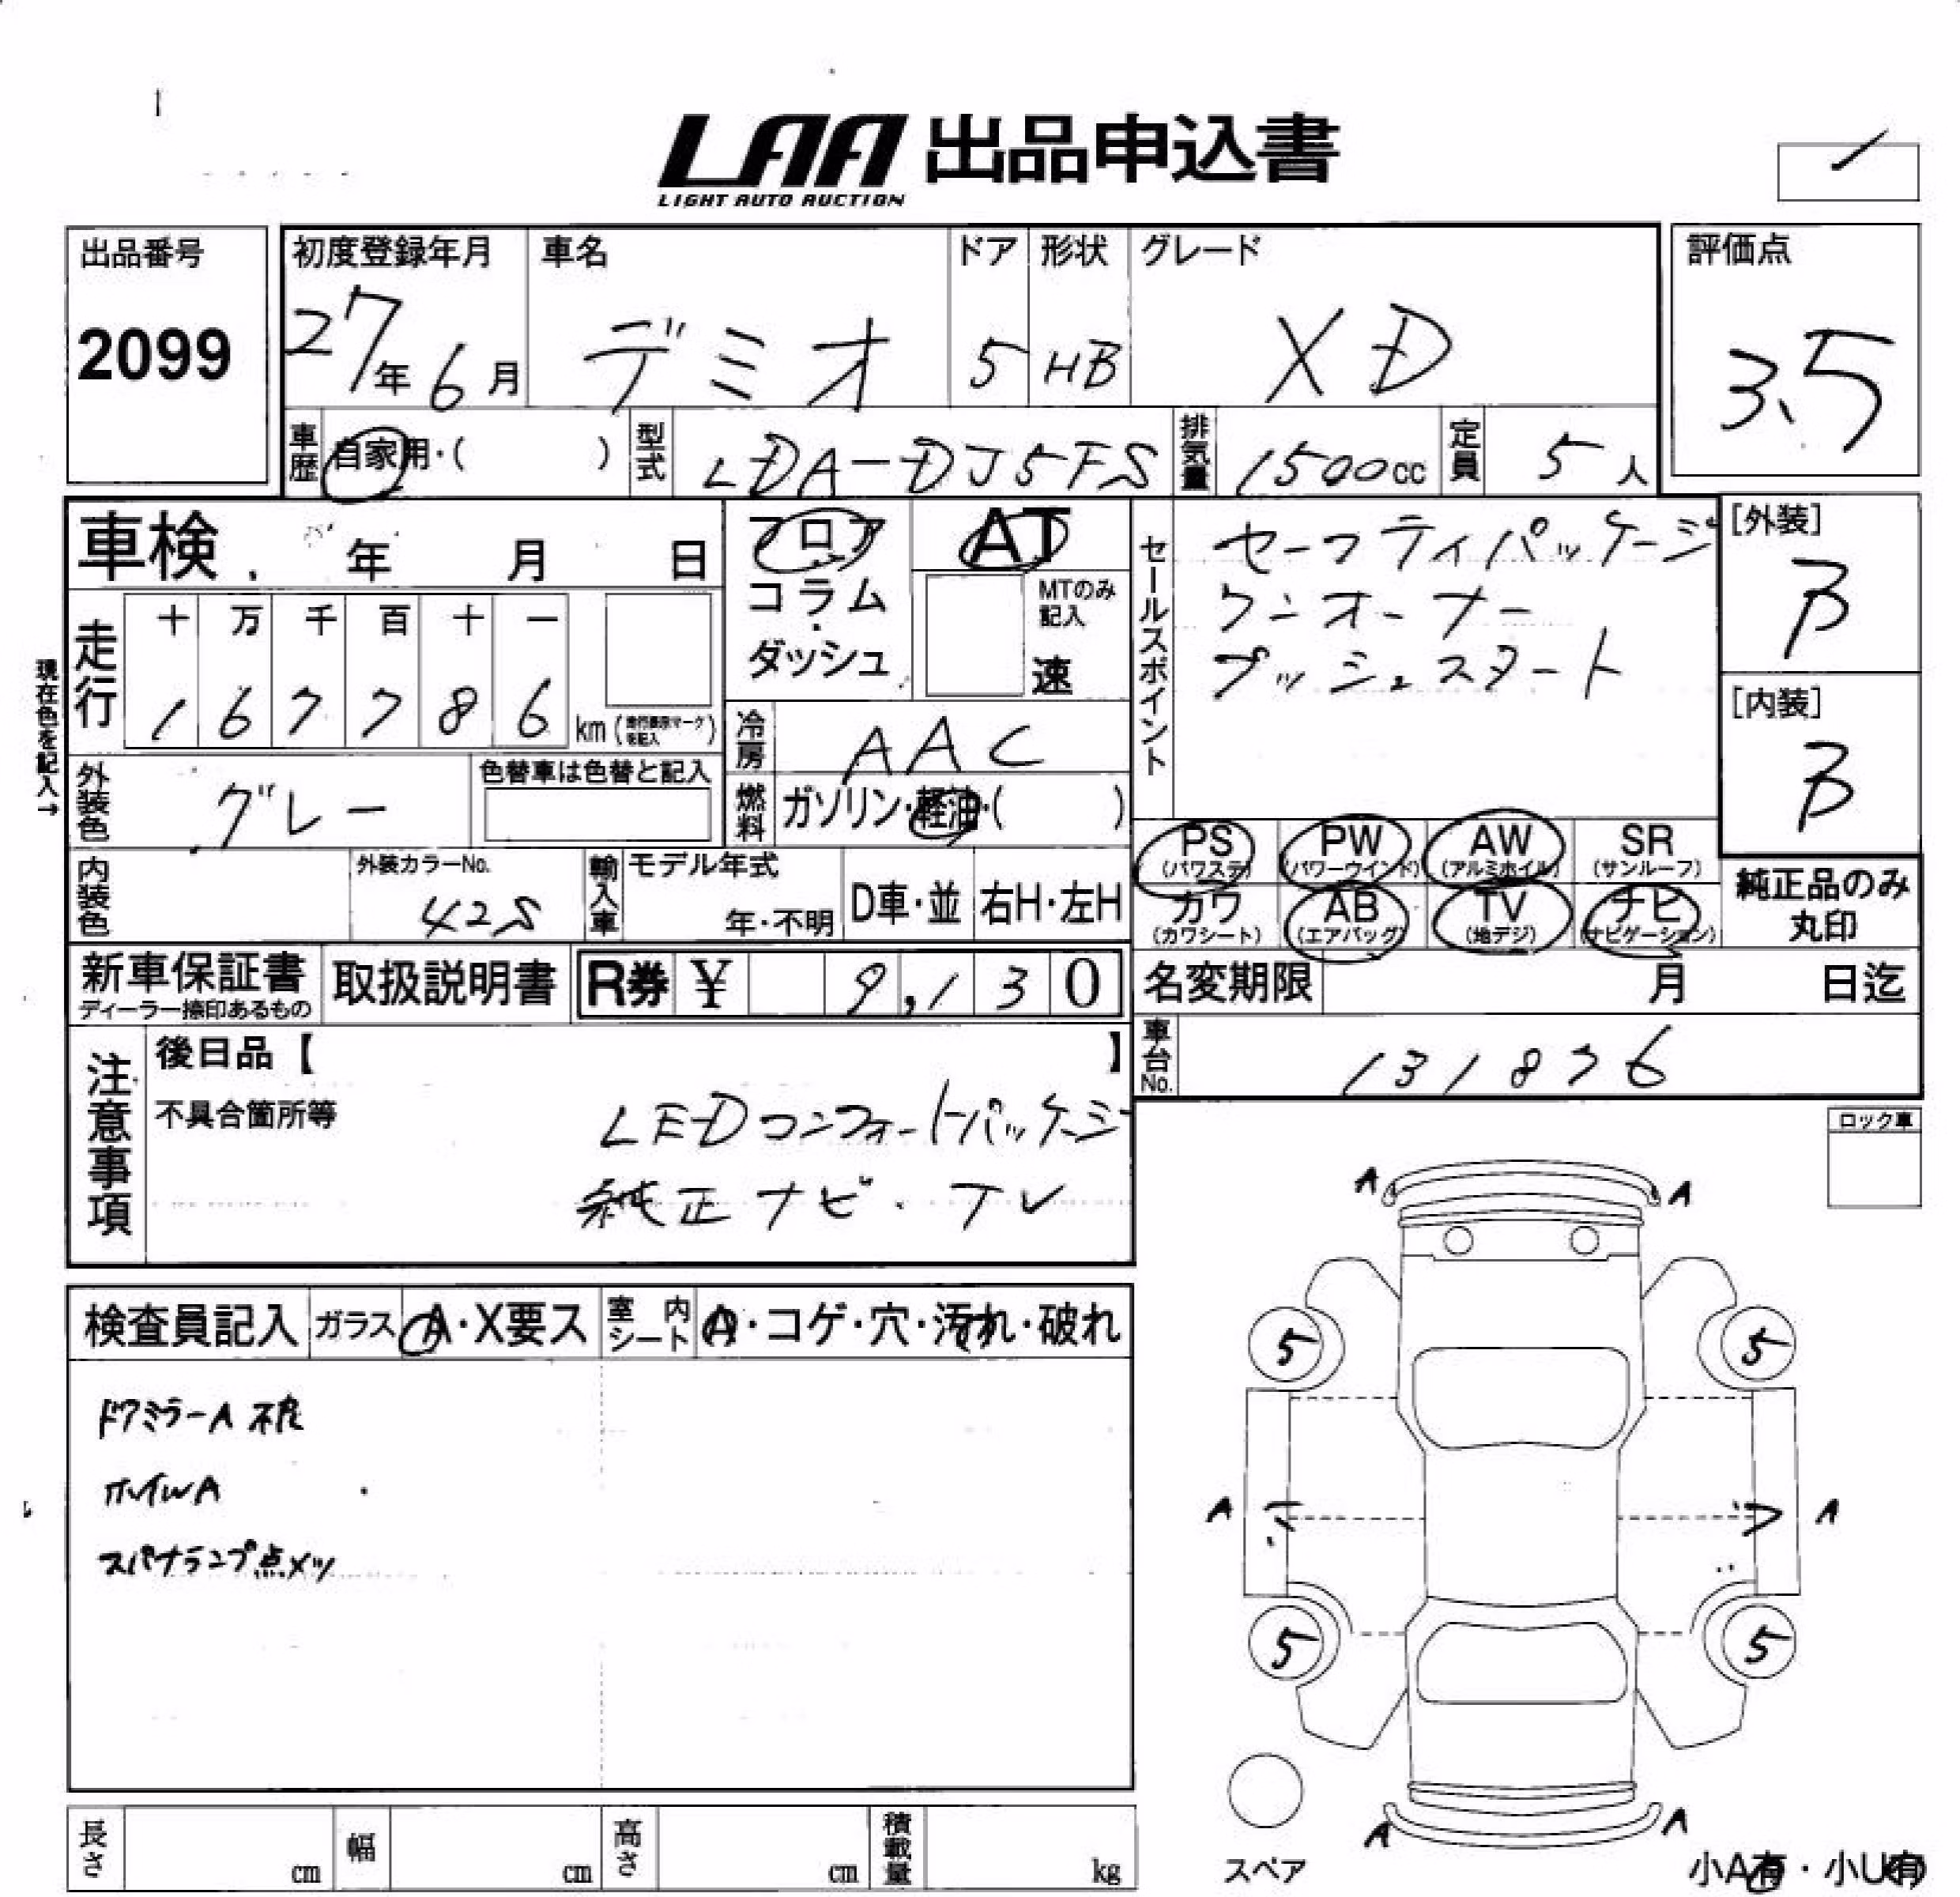 LAA 出品申込書
LIGHT AUTO AUCTION
出品番号
2099
初度登録年月
27年6月
車名
デミオ
ドア
5
形状
HB
グレード
XD
評価点
3.5
車歴
自家用・( )
型式
LDA-DJ5FS
排気量
1500cc
定員
5人
車検 年 月 日
フロア
コラム
・
ダッシュ
AT
MTのみ
記入
速
セールスポイント
セーフティパッケージ
ワンオーナー
プッシュスタート
[外装]
B
[内装]
B
現在色を記入→
走行
十 万 千 百 十 一
1 6 7 7 8 6 km
(走行表示マークを記入)
冷房
AAC
外装色
グレー
色替車は色替と記入
燃料
ガソリン・軽油・( )
PS
(パワステ)
PW
(パワーウインド)
AW
(アルミホイル)
SR
(サンルーフ)
カワ
(カワシート)
AB
(エアバッグ)
TV
(地デジ)
ナビ
(ナビゲーション)
純正品のみ
丸印
内装色
外装カラーNo.
42S
輸入車
モデル年式
年・不明
D車・並
右H・左H
新車保証書
ディーラー捺印あるもの
取扱説明書
R券 ¥ 9,130
名変期限 月 日迄
車台No.
131876
注意事項
後日品【 】
不具合箇所等
LEDコンフォートパッケージ
純正ナビ・TV
ロック車
検査員記入
ガラス
A・X要ス
室内シート
A・コゲ・穴・汚れ・破れ
ドアミラーA
ホイルA
スパナランプ点メツ
A A
5 5
A A
5 5
A A
スペア
小A有・小U有
長さ cm
幅 cm
高さ cm
積載量 kg